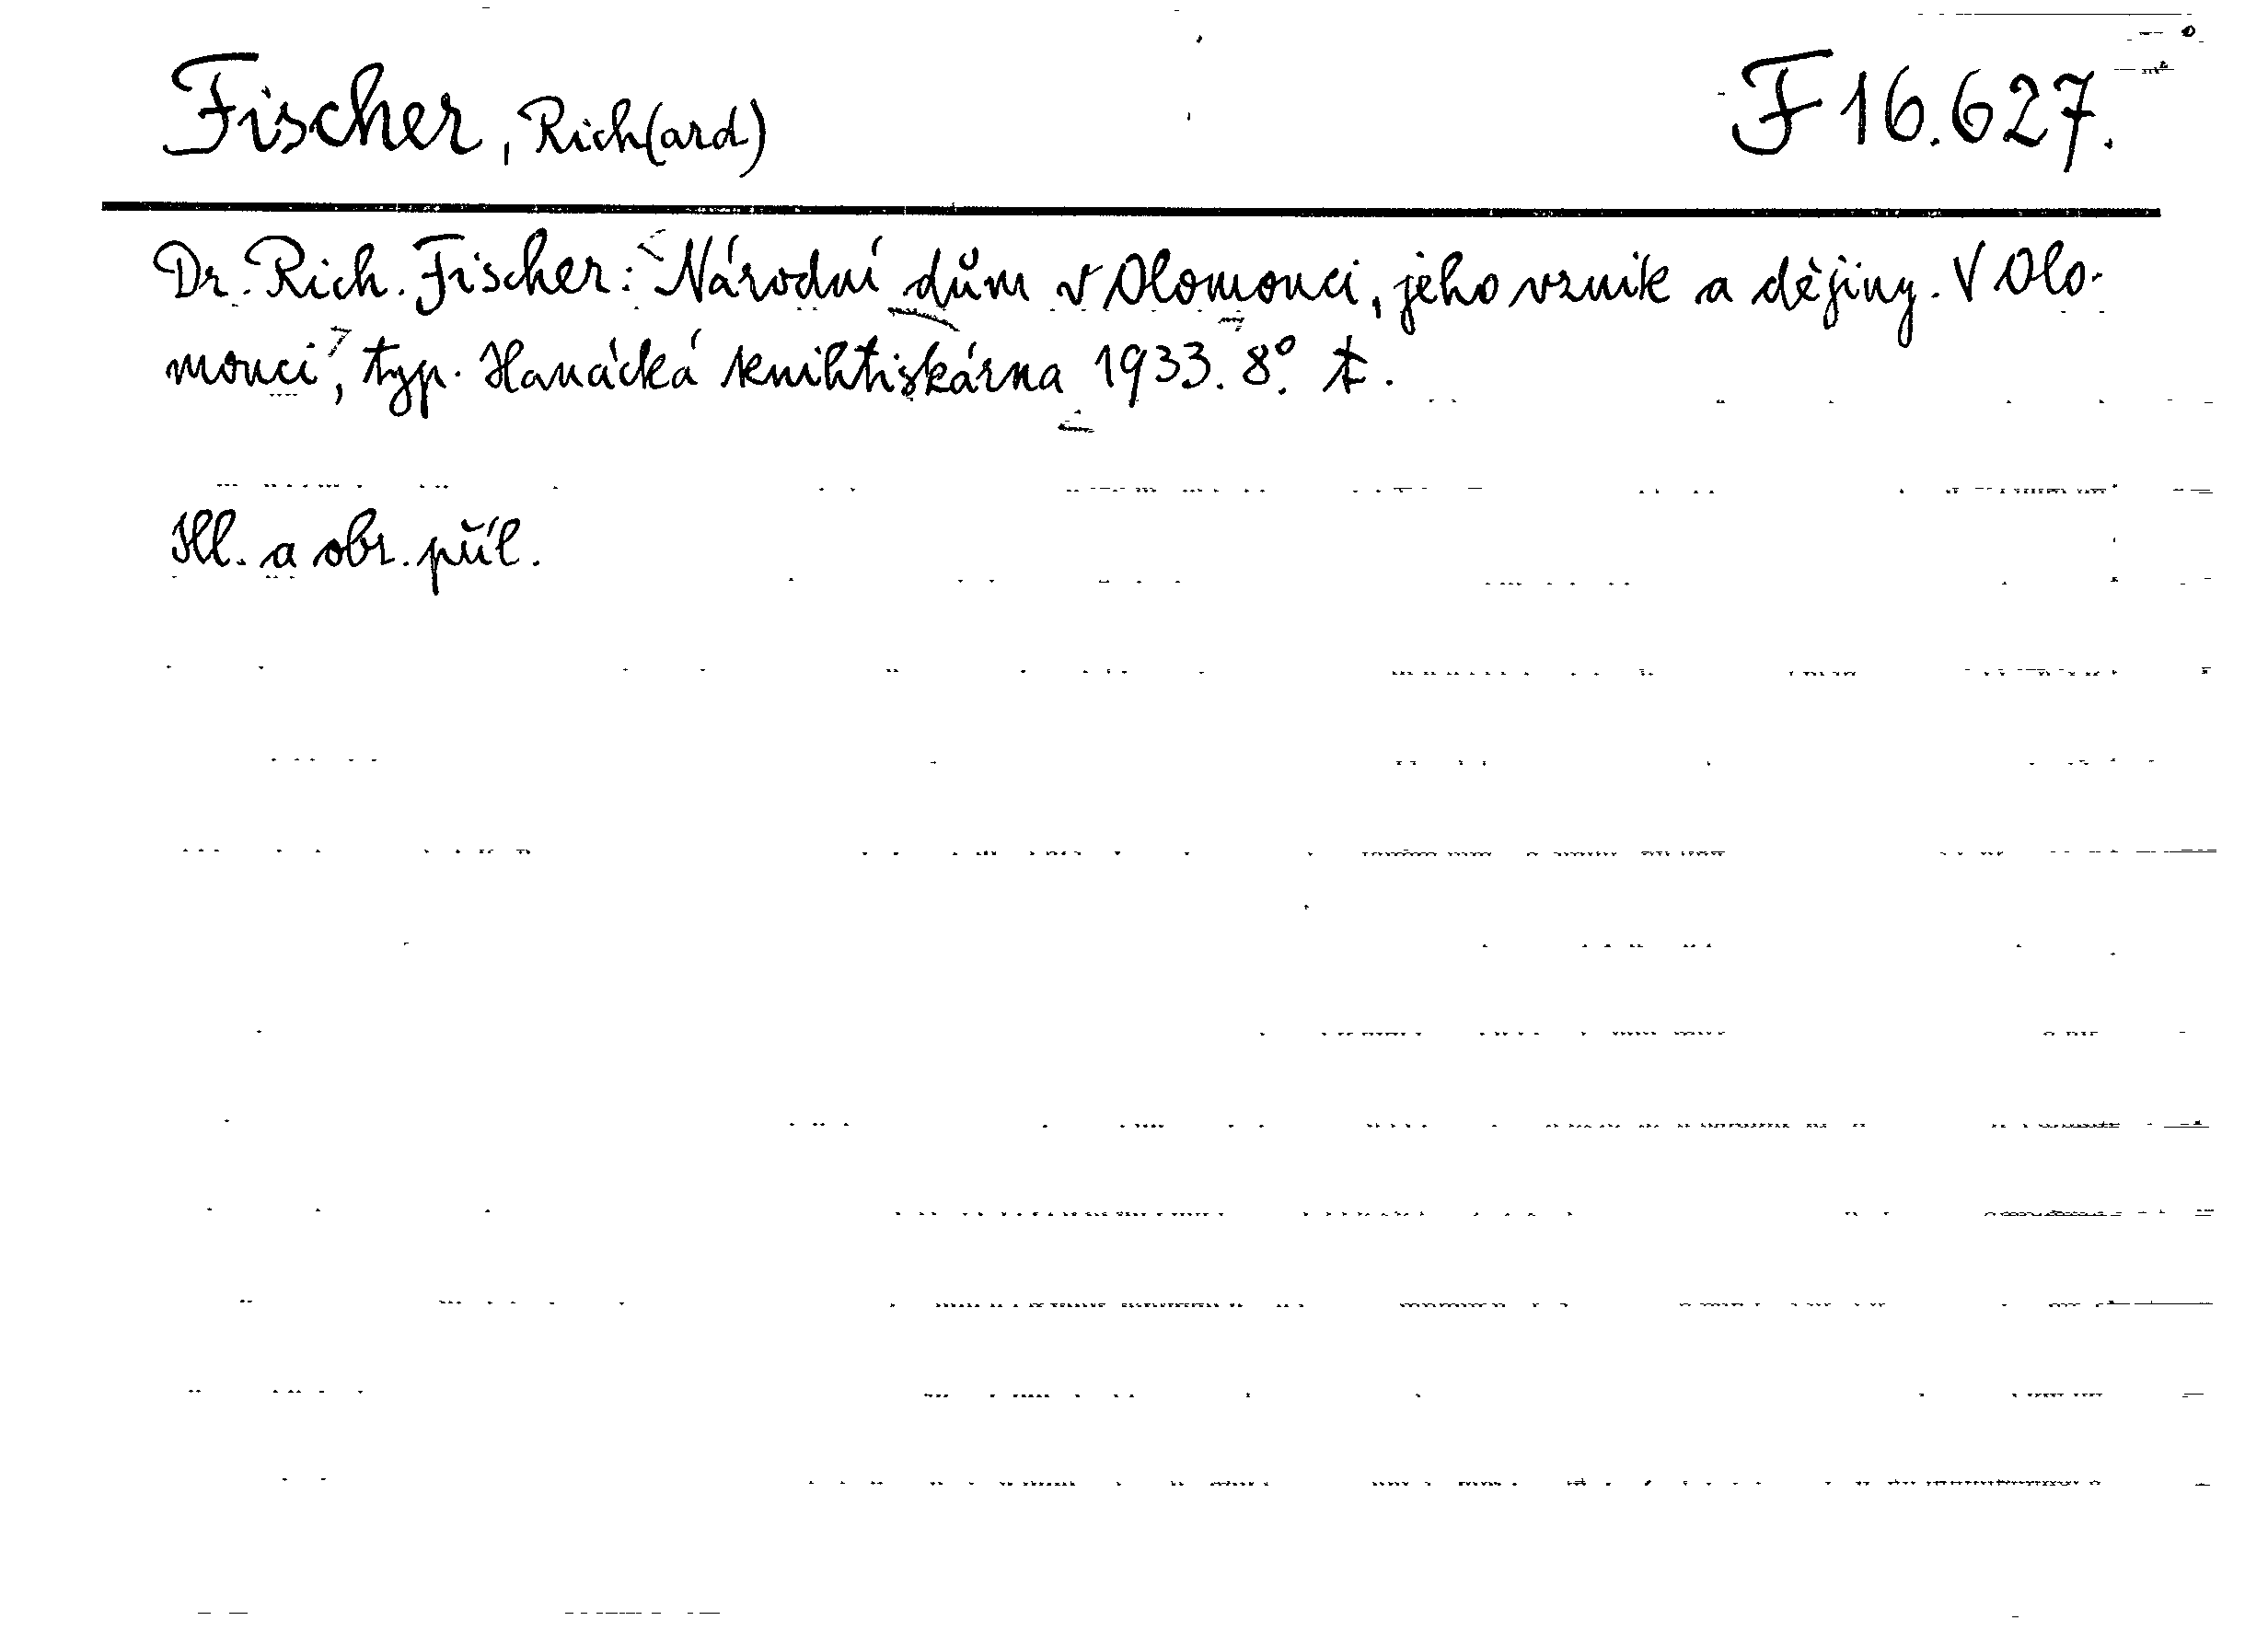 Fischer, Rich(ard)
F 16.627.
Dr. Rich. Fischer: Národní dům v Olomouci, jeho vznik a dějiny. V Olo-
mouci, typ. Hanácká knihtiskárna 1933. 8°.
Ill. a obr. příl.